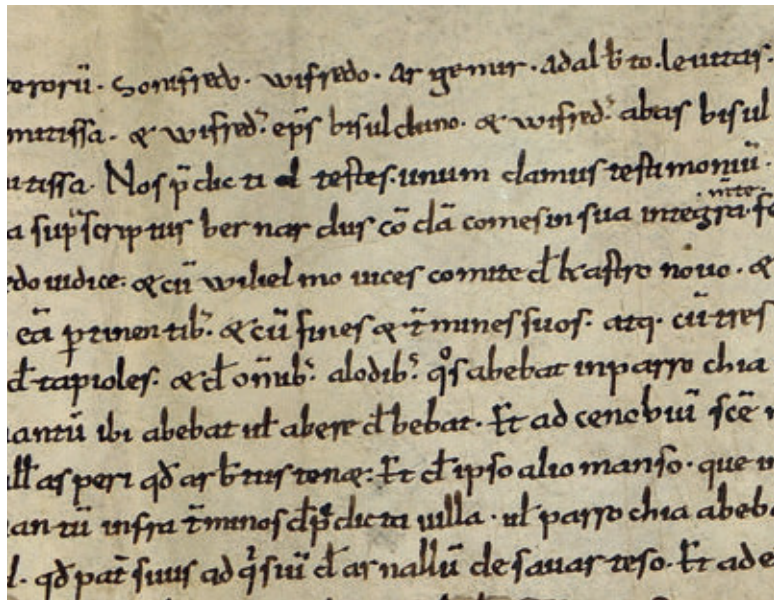 terorū. Sonifredo. wifredo. Argemir. Adalb̄to. leuitas.
mitissa. & wifred᷒ ep̄s bisulduno. & wifred᷒ abas bisul
itissa. Nos p̄dicti testes. unum damus testimoniū.
a sup̄scriptus bernardus cōdā comes in sua integra. mte. fe
edo iudice. & cū wilielmo uicescomite d̄ kastro nouo. &
eā ꝑtinentib᷒. & cū fines & t̄mines suos. atq. cū tres
d̄ tapioles. & d̄ om̄ib᷒ alodib᷒. q̊s abebat in parrochia
antū ibi abebat ul̄ abere d̄bebat. Et ad cenobiuī sc̄e
all̄ asperi qd̄ arb̄tus tenæ. Et d̄ ipso alio manso. que
antū infra t̄minos d̄ p̄dicta uilla. ul̄ parrochia abeb
l. qd̄ pat̄ suus adq̊siuī d̄ arnallū de sauarteso. Et ad e